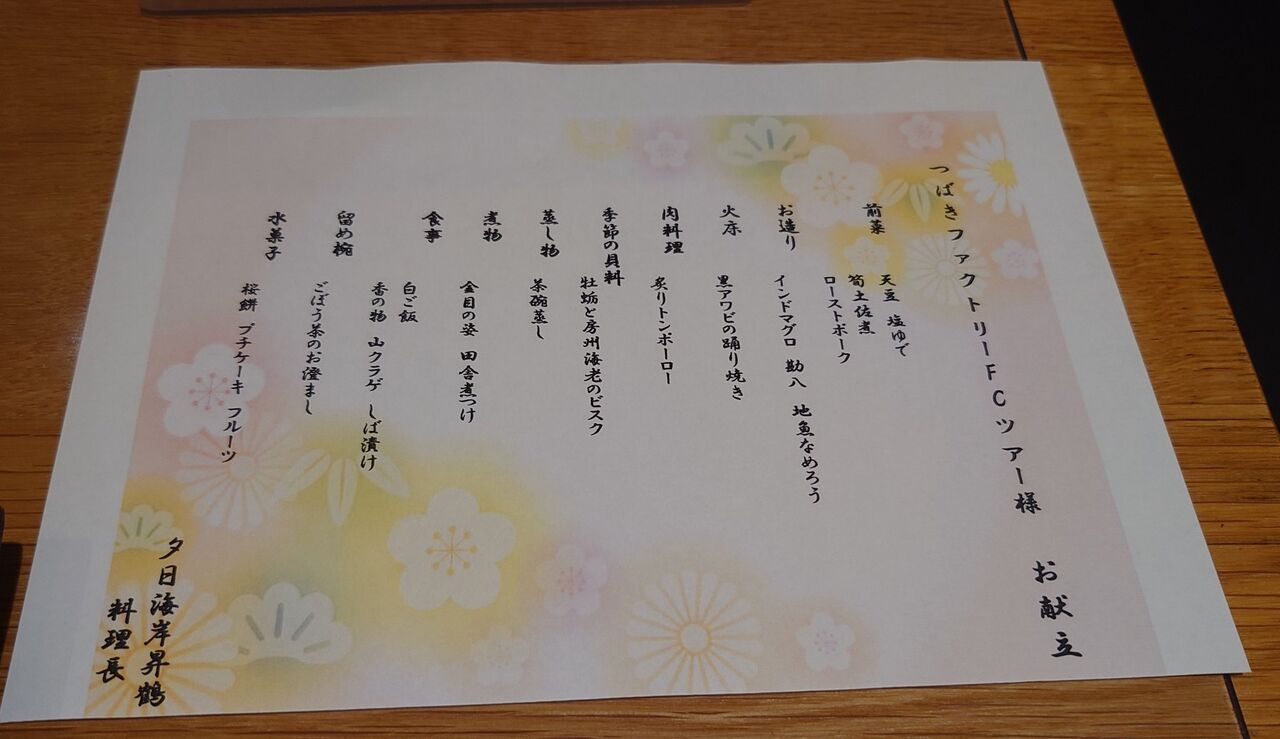 つばきファクトリーFCツアー様 お献立
前菜
天豆 塩ゆで
筍土佐煮
ローストポーク
お造り
インドマグロ 勘八 地魚なめろう
火床
黒アワビの踊り焼き
肉料理
炙りトンポーロー
季節の貝料
牡蛎と房州海老のビスク
蒸し物
茶碗蒸し
煮物
金目の姿 田舎煮つけ
食事
白ご飯
香の物 山クラゲ しば漬け
留め椀
ごぼう茶のお澄まし
水菓子
桜餅 プチケーキ フルーツ
夕日海岸昇鶴
料理長